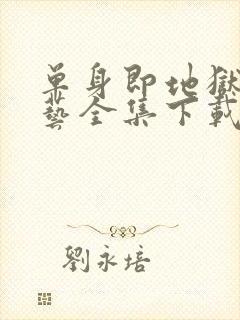 單身即地獄
藝全集下載
劉永培